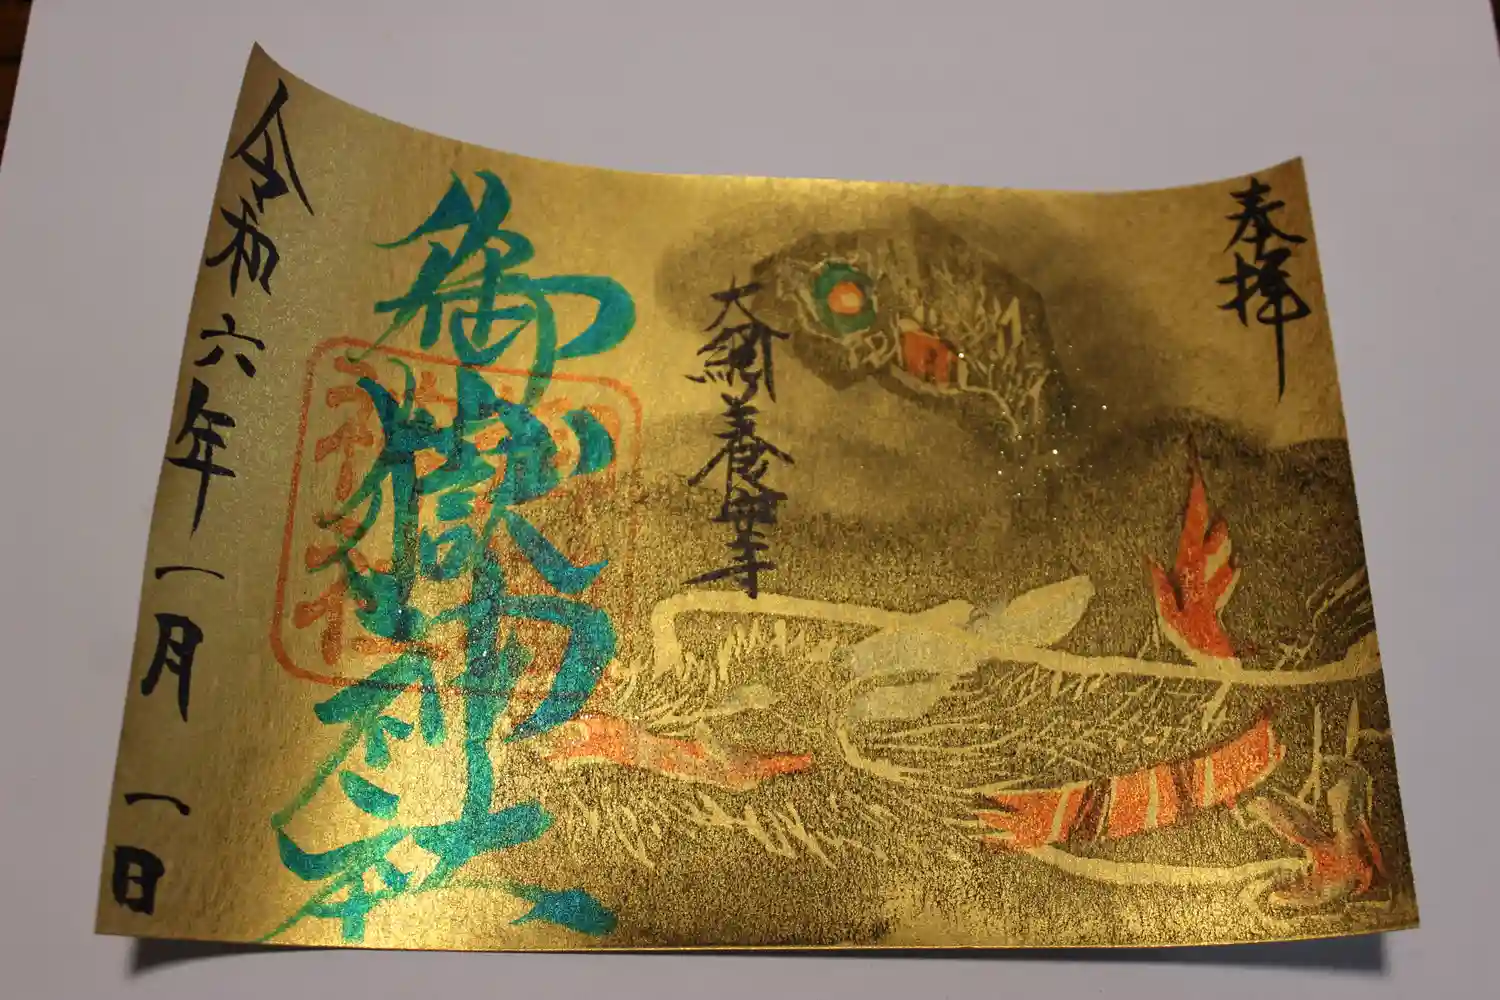 奉拝
大網養華寺
御嶽神社
令和六年一月一日